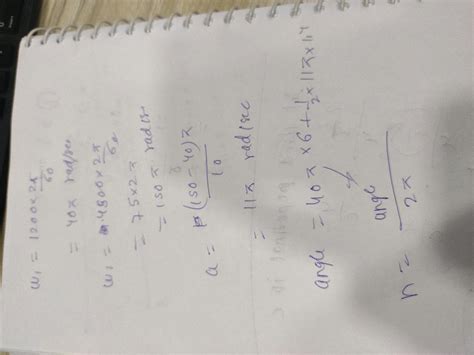 ω₁ = 1200 × 2π/60
= 40π rad/sec
ω₂ = 4800 × 2π/60
= 75 × 2π rad/s
= 150π rad/s
a = (150 - 40)π/10
= 11π rad/sec
angle = 40π × 6 + 1/2 × 11π ×
n = angle/2π